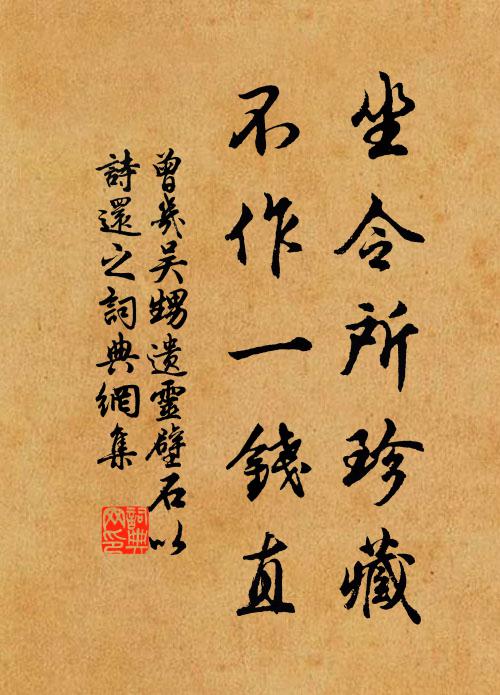 坐令所珍藏
不作一錢直
曾幾吴甥遺靈壁石以
詩還之詞典網集
詞典
网印